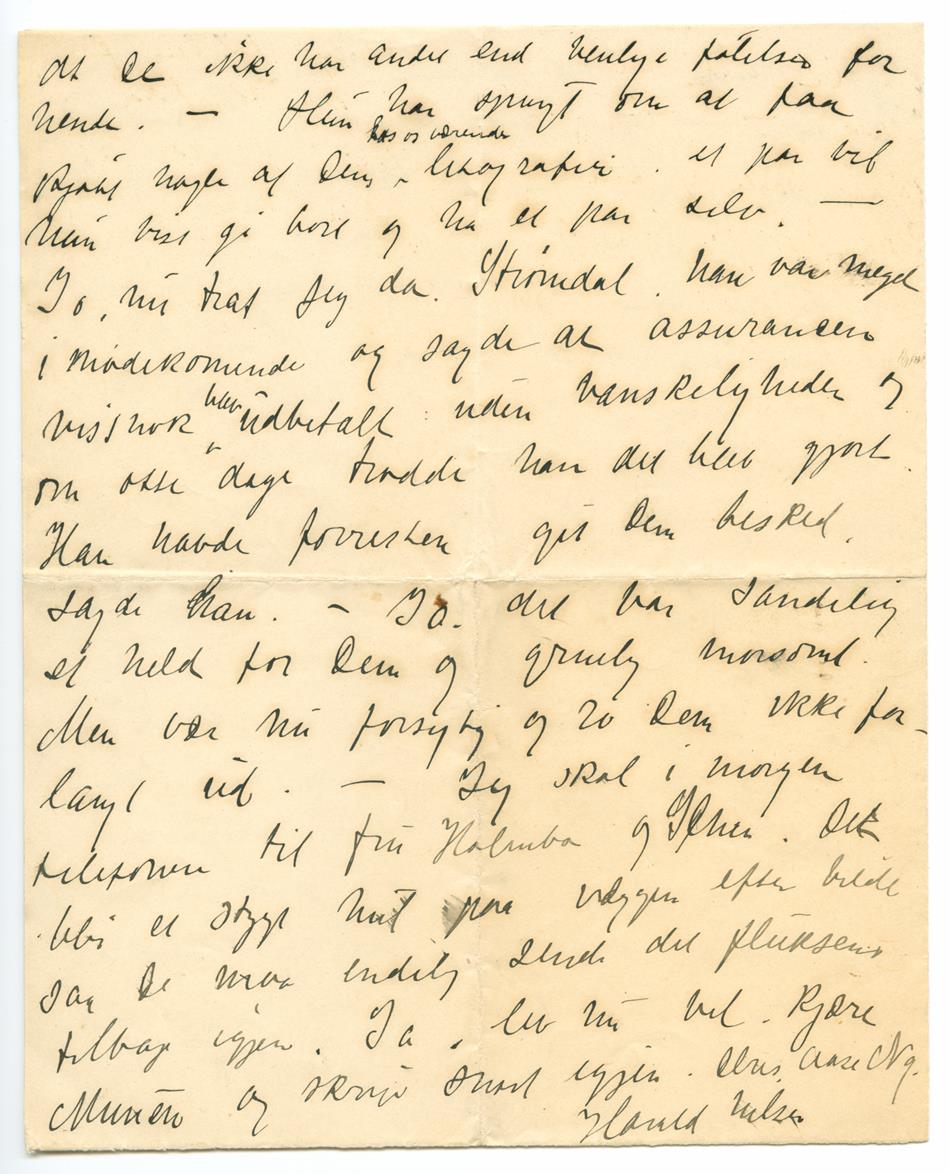 at De ikke har andet end venlige følelser for
hende. — Hun har spurgt om at faa
kjøbt nogle af Deres hos os værende litografier. et par vil
hun vist gi bort og ha et par selv. —
Jo, nu traf jeg da Strømdal, han var meget
imødekomende og sagde at assurancen
vissnok blev udbetalt uden vanskeligheder og
om otte dage trodde han det blev gjort.
Han havde forresten git Dem besked,
sagde han. — Ja. det var sandelig
et held for Dem og gruelig morsomt.
Men vær nu forsigtig og ro Dem ikke for-
langt ud. — Jeg skal i morgen
telefonere til fru Holmboe og Det
blir et stygt hul paa væggen efter billedet
saa De maa endelig sende det fluksens
tilbage igjen. Ja, lev nu vel. Kjære
Munch og skriv snart igjen. Deres Aase Ng.
Harald Nielsen